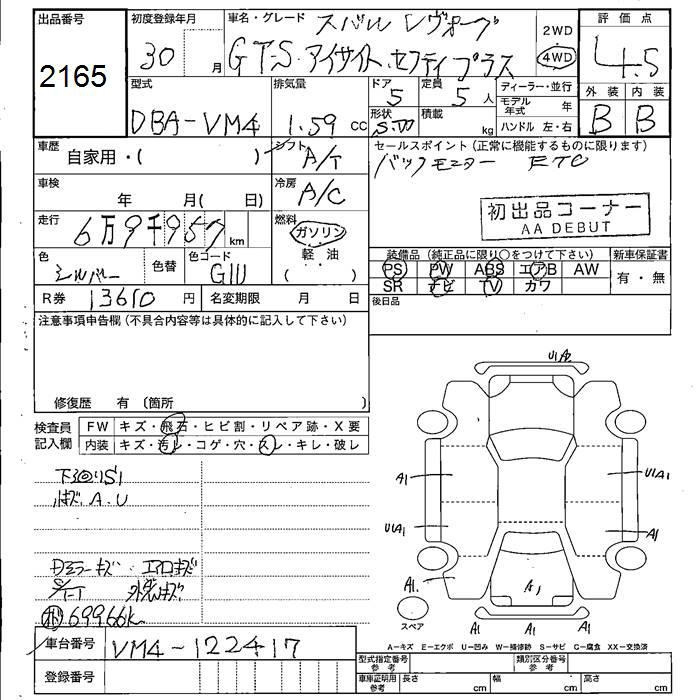 出品番号
2165
初度登録年月
30 月
車名・グレード スバル レヴォーグ
GT-S・アイサイト・セフティプラス
2WD
4WD
評価点
4.5
外装 内装
B B
型式
DBA-VM4
排気量
1.59 cc
ドア
5
定員
5 人
形状
S.W
積載
kg
ディーラー・並行
モデル年式 年
ハンドル 左・右
車歴
自家用・( )
シフト
A/T
車検
年 月( 日)
冷房
A/C
走行
6万9千957 km
燃料
ガソリン
軽・油
( )
色
シルバー
色替
色コード
G1U
R券 13610 円
名変期限 月 日
セールスポイント(正常に機能するものに限ります)
バックモニター ETC
初出品コーナー
AA DEBUT
装備品(純正品に限り○をつけて下さい)
PS PW ABS エアB AW
SR ナビ TV カワ
新車保証書
有・無
後日品
注意事項申告欄(不具合内容等は具体的に記入して下さい)
修復歴 有 (箇所 )
検査員
記入欄
FW キズ・飛石・ヒビ割・リペア跡・X要
内装 キズ・汚レ・コゲ・穴・スレ・キレ・破レ
下回りS1
キズ A.U
ミラーキズ エアロキズ
69966k
車台番号 VM4-122417
登録番号
U1A2
A1
U1A1
U1A1
A1
A1
A1
A1
A1
A1
スペア
A-キズ E-エクボ U-凹み W-補修跡 S-サビ C-腐食 XX-交換済
型式指定番号
参考
類別区分番号
参考
車庫証明用
参考
長さ cm
幅 cm
高さ cm